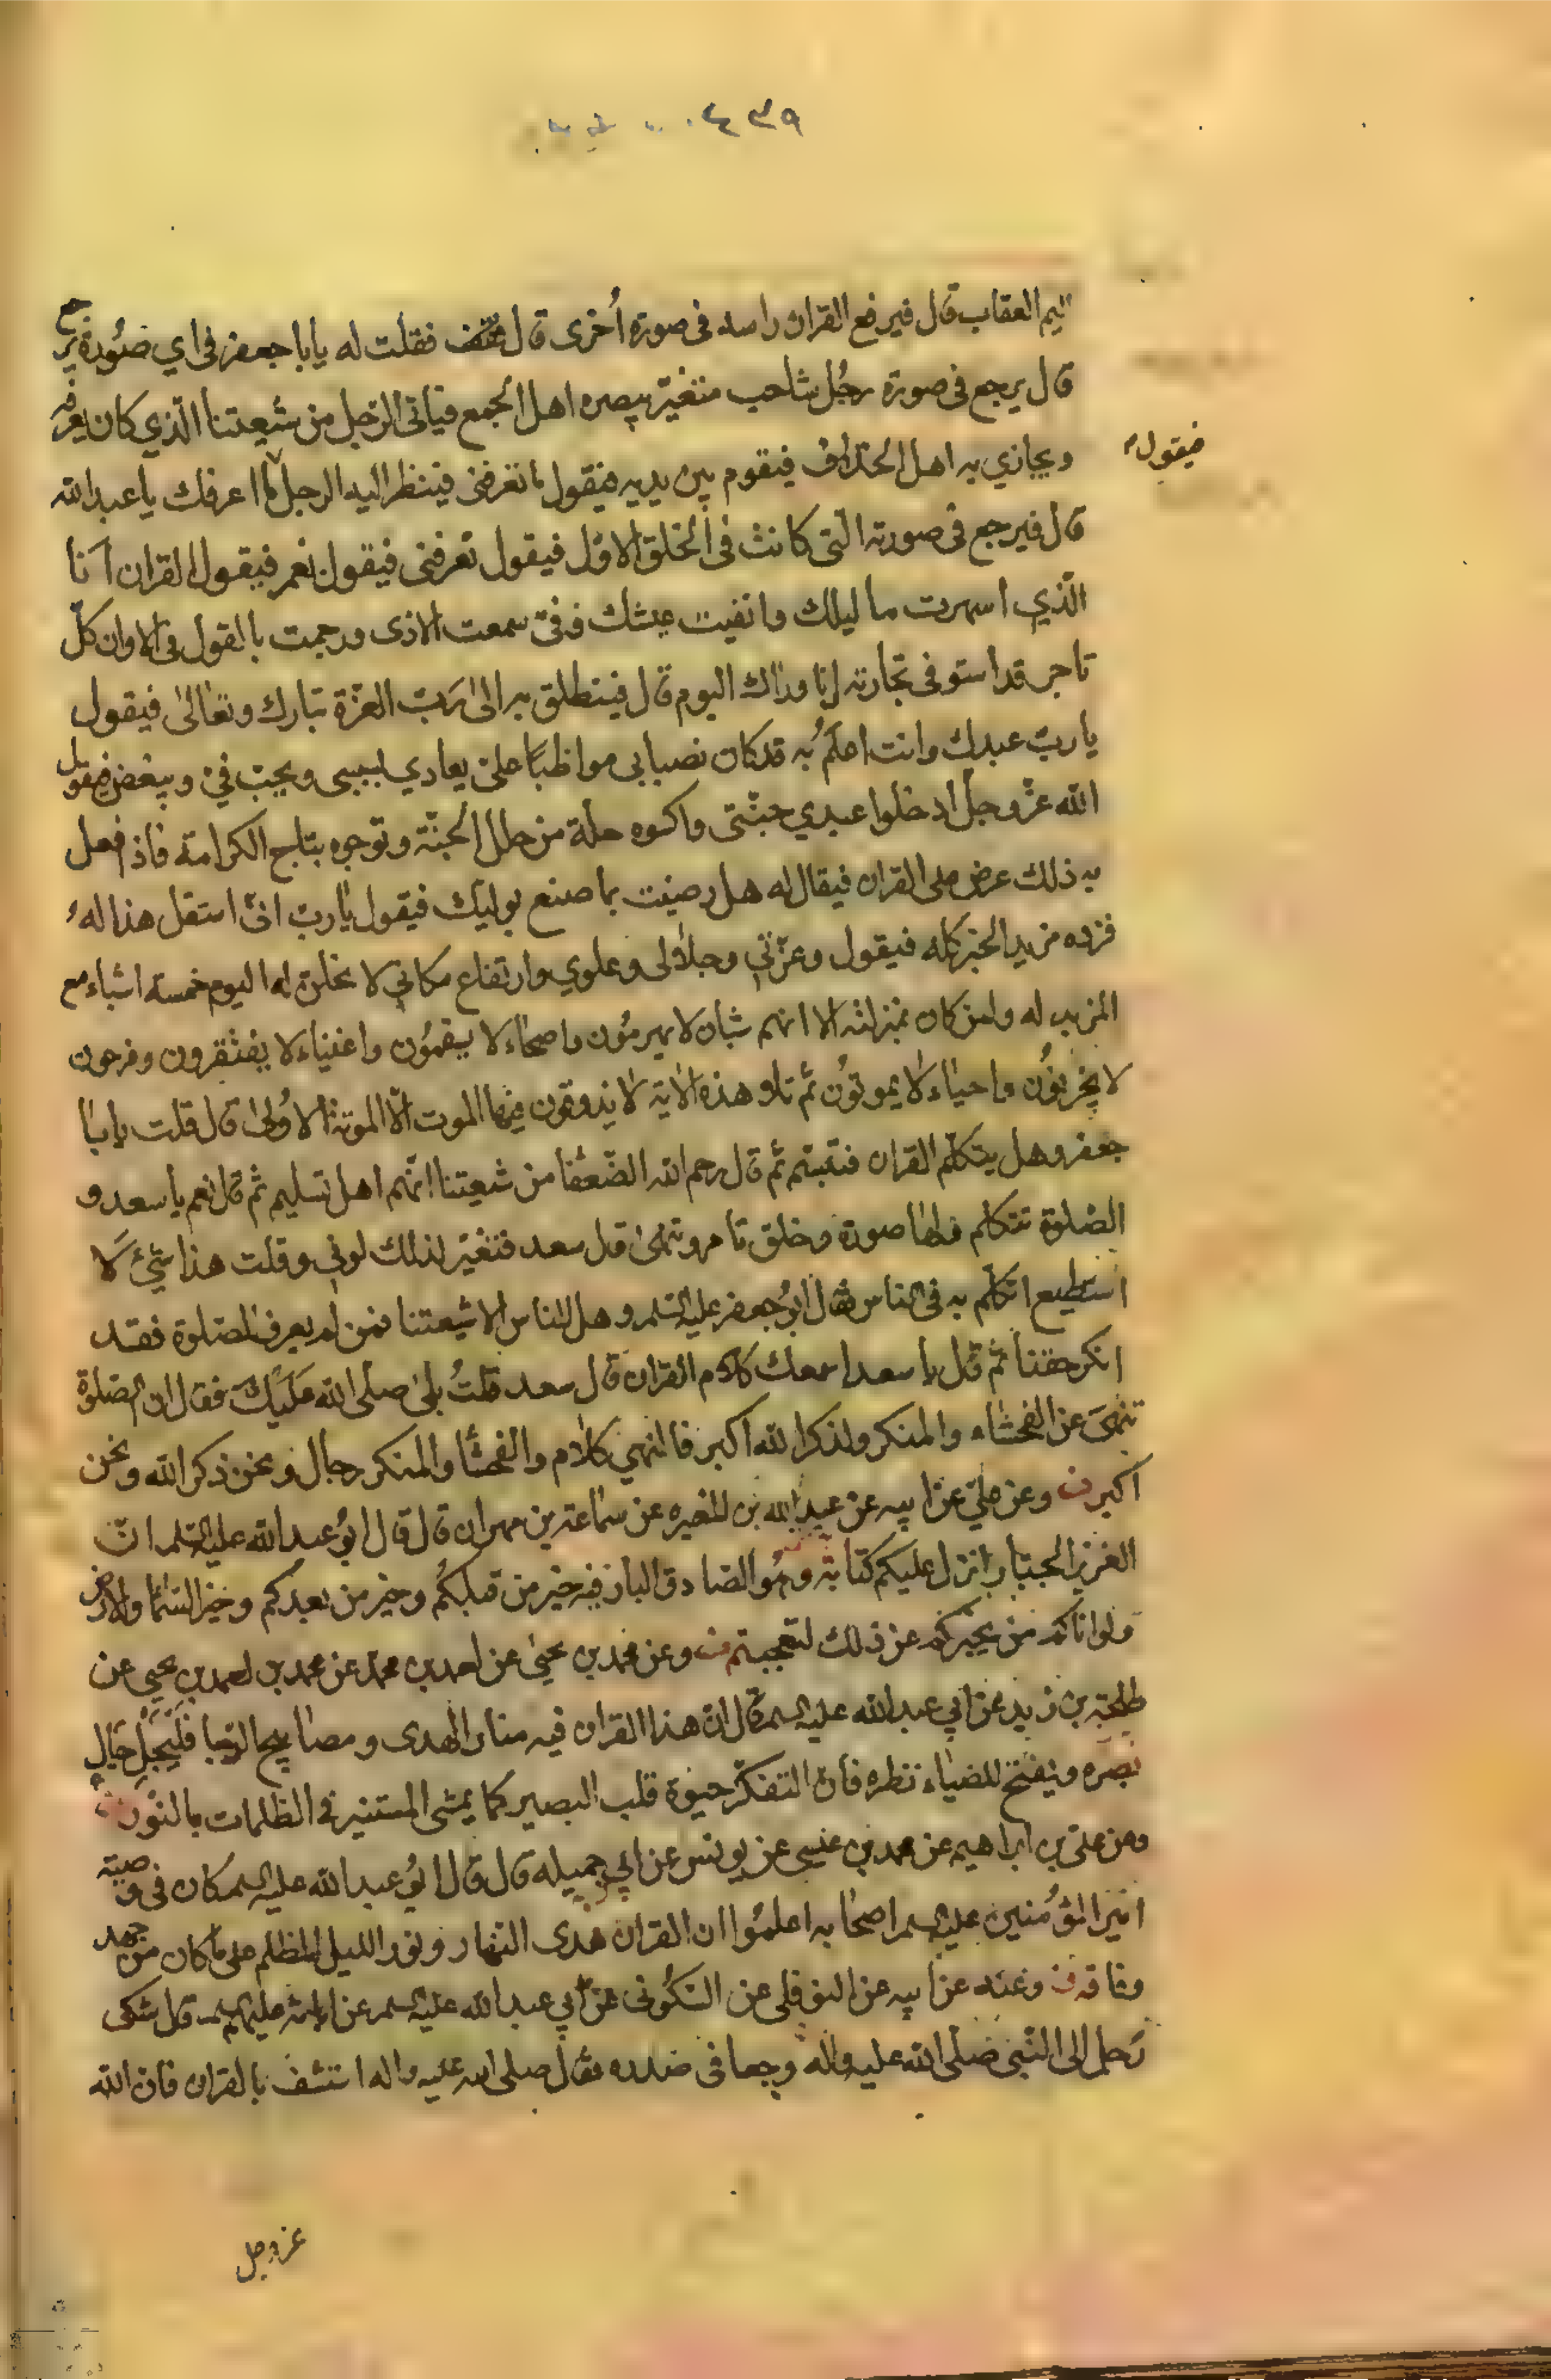 ٤٣٩
اليم العقاب قال فيرفع القران راسه فى صورة أخرى قال فقلت له يا با جعفر فى اي صورة يرجع
قال يرجع فى صورة رجل شاحب متغير يبصره اهل الجمع فياتى الرجل من شيعتنا الذي كان يعرفه
ويجادي به اهل الخلاف فيقوم بين يديه فيقول ما تعرفنى فينظر اليه الرجل ما اعرفك يا عبد الله
فيقول
قال فيرجع فى صورته التى كانت فى الخلق الاول فيقول تعرفنى فيقول نعم فيقول القران انا
الذي اسهرت ليلك وانصبت عيشك وفى سمعت الاذى ورجمت بالقول فى الا وان كل
تاجر قد استوفى تجارته انا وراك اليوم قال فينطلق به الى رب العزة تبارك وتعالى فيقول
يا رب عبدك وانت اعلم به قد كان نصبا بى مواظبا على يعادي بسببى ويحب فى ويبغض فيقول
الله عز وجل ادخلوا عبدي جنتى واكسوه حلة من حلل الجنة وتوجوه بتاج الكرامة فاذا فعل
به ذلك عرض على القران فيقال له هل رضيت بما صنع بوليك فيقول يا رب انى استقل هذا له
فزده مزيد الخير كله فيقول وعزتي وجلالى وعلوي وارتفاع مكاني لا نحلن له اليوم خمسة اشياء مع
المزيد له ولمن كان بمنزلته الا انهم شبان لا يهرمون واصحاء لا يسقمون واغنياء لا يفتقرون وفرحون
لا يحزنون واحياء لا يموتون ثم تلا هذه الاية لا يذوقون فيها الموت الا الموتة الاولى قال قلت يا با
جعفر وهل يتكلم القران فتبسم ثم قال رحم الله الضعفا من شيعتنا انهم اهل تسليم ثم قال نعم يا سعد و
الصلوة تتكلم ولها صورة وخلق تامر وتنهى قال سعد فتغير لذلك لونى وقلت هذا شيئ لا
استطيع اتكلم به فى الناس فقال ابو جعفر عليه السلم وهل الناس الا شيعتنا فمن لم يعرف الصلوة فقد
انكر حقنا ثم قال يا سعد اسمعك كلام القران قال سعد قلت بلى صلى الله عليك فقال ان الصلوة
تنهى عن الفحشاء والمنكر ولذكر الله اكبر فالنهي كلام والفحشا والمنكر رجال ونحن ذكر الله ونحن
اكبر وعن علي عن ابيه عن عبد الله بن المغيره عن سماعة بن مهران قال قال ابو عبد الله عليه السلم ان
العزيز الجبار انزل عليكم كتابه وهو الصادق البار فيه خبر من قبلكم وخبر من بعدكم وخبر السما والارض
ولو اتاكم من يخبركم عن ذلك لتعجبتم وعن محمد بن يحيى عن احمد بن محمد عن محمد بن احمد بن يحيى عن
طلحة بن زيد عن ابي عبد الله عليه السلم قال ان هذا القران فيه منار الهدى ومصابيح الدجا فليجل جال
بصره ويفتح للضياء نظره فان التفكر حيوة قلب البصير كما يمشى المستنير فى الظلمات بالنور
وعن على بن ابراهيم عن محمد بن عيسى عن يونس عن ابي جميله قال قال ابو عبد الله عليه السلم كان فى وصية
امير المؤمنين عليه السلم اصحابه اعلموا ان القران هدى النهار ونور الليل المظلم على ما كان من جهد
وفاقه وعنه عن ابيه عن النوفلى عن السكونى عن ابي عبد الله عليه السلم عن ابائه عليهم السلم قال شكى
رجل الى النبى صلى الله عليه واله وجعا فى صدره فقال صلى الله عليه واله استشف بالقران فان الله
عز وجل